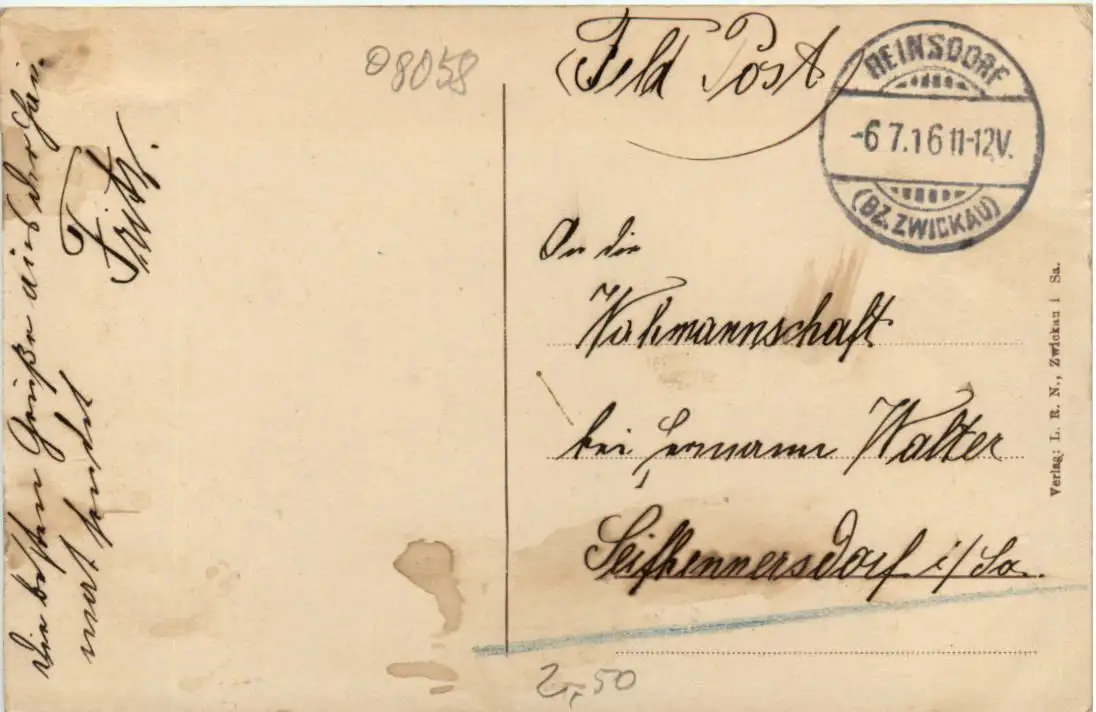 Die besten Grüße aus der Hei-
mat sendet
Fritz.
08058
Feld Post
REINSDORF
-6 7.16 11-12V.
(BZ. ZWICKAU)
An die
Wahmannschaft
bei Hermann Walter
Seifhennersdorf i/Sa.
Verlag: L. R. N., Zwickau i Sa.
2,50